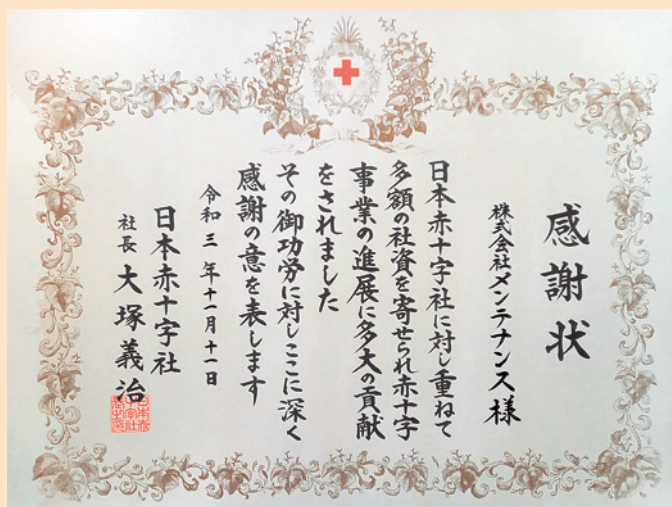 感謝状
株式会社メンテナンス様
日本赤十字社に対し重ねて
多額の社資を寄せられ赤十字
事業の進展に多大の貢献
をされました
その御功労に対しここに深く
感謝の意を表します
令和三年十一月十一日
日本赤十字社
社長 大塚義治